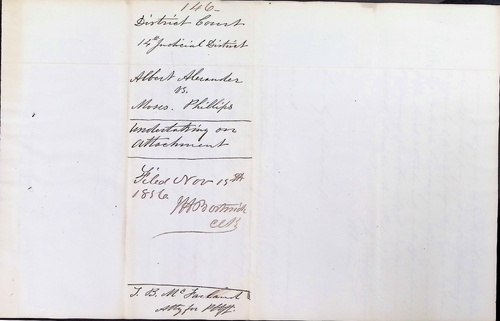 146-
District Court
14th Judicial District
Albert Alexander
vs.
Moses. Phillips
Undertaking on
Attachment
Filed Nov 15th
1856
Clk
T. B. McFarland
Atty for Plff.